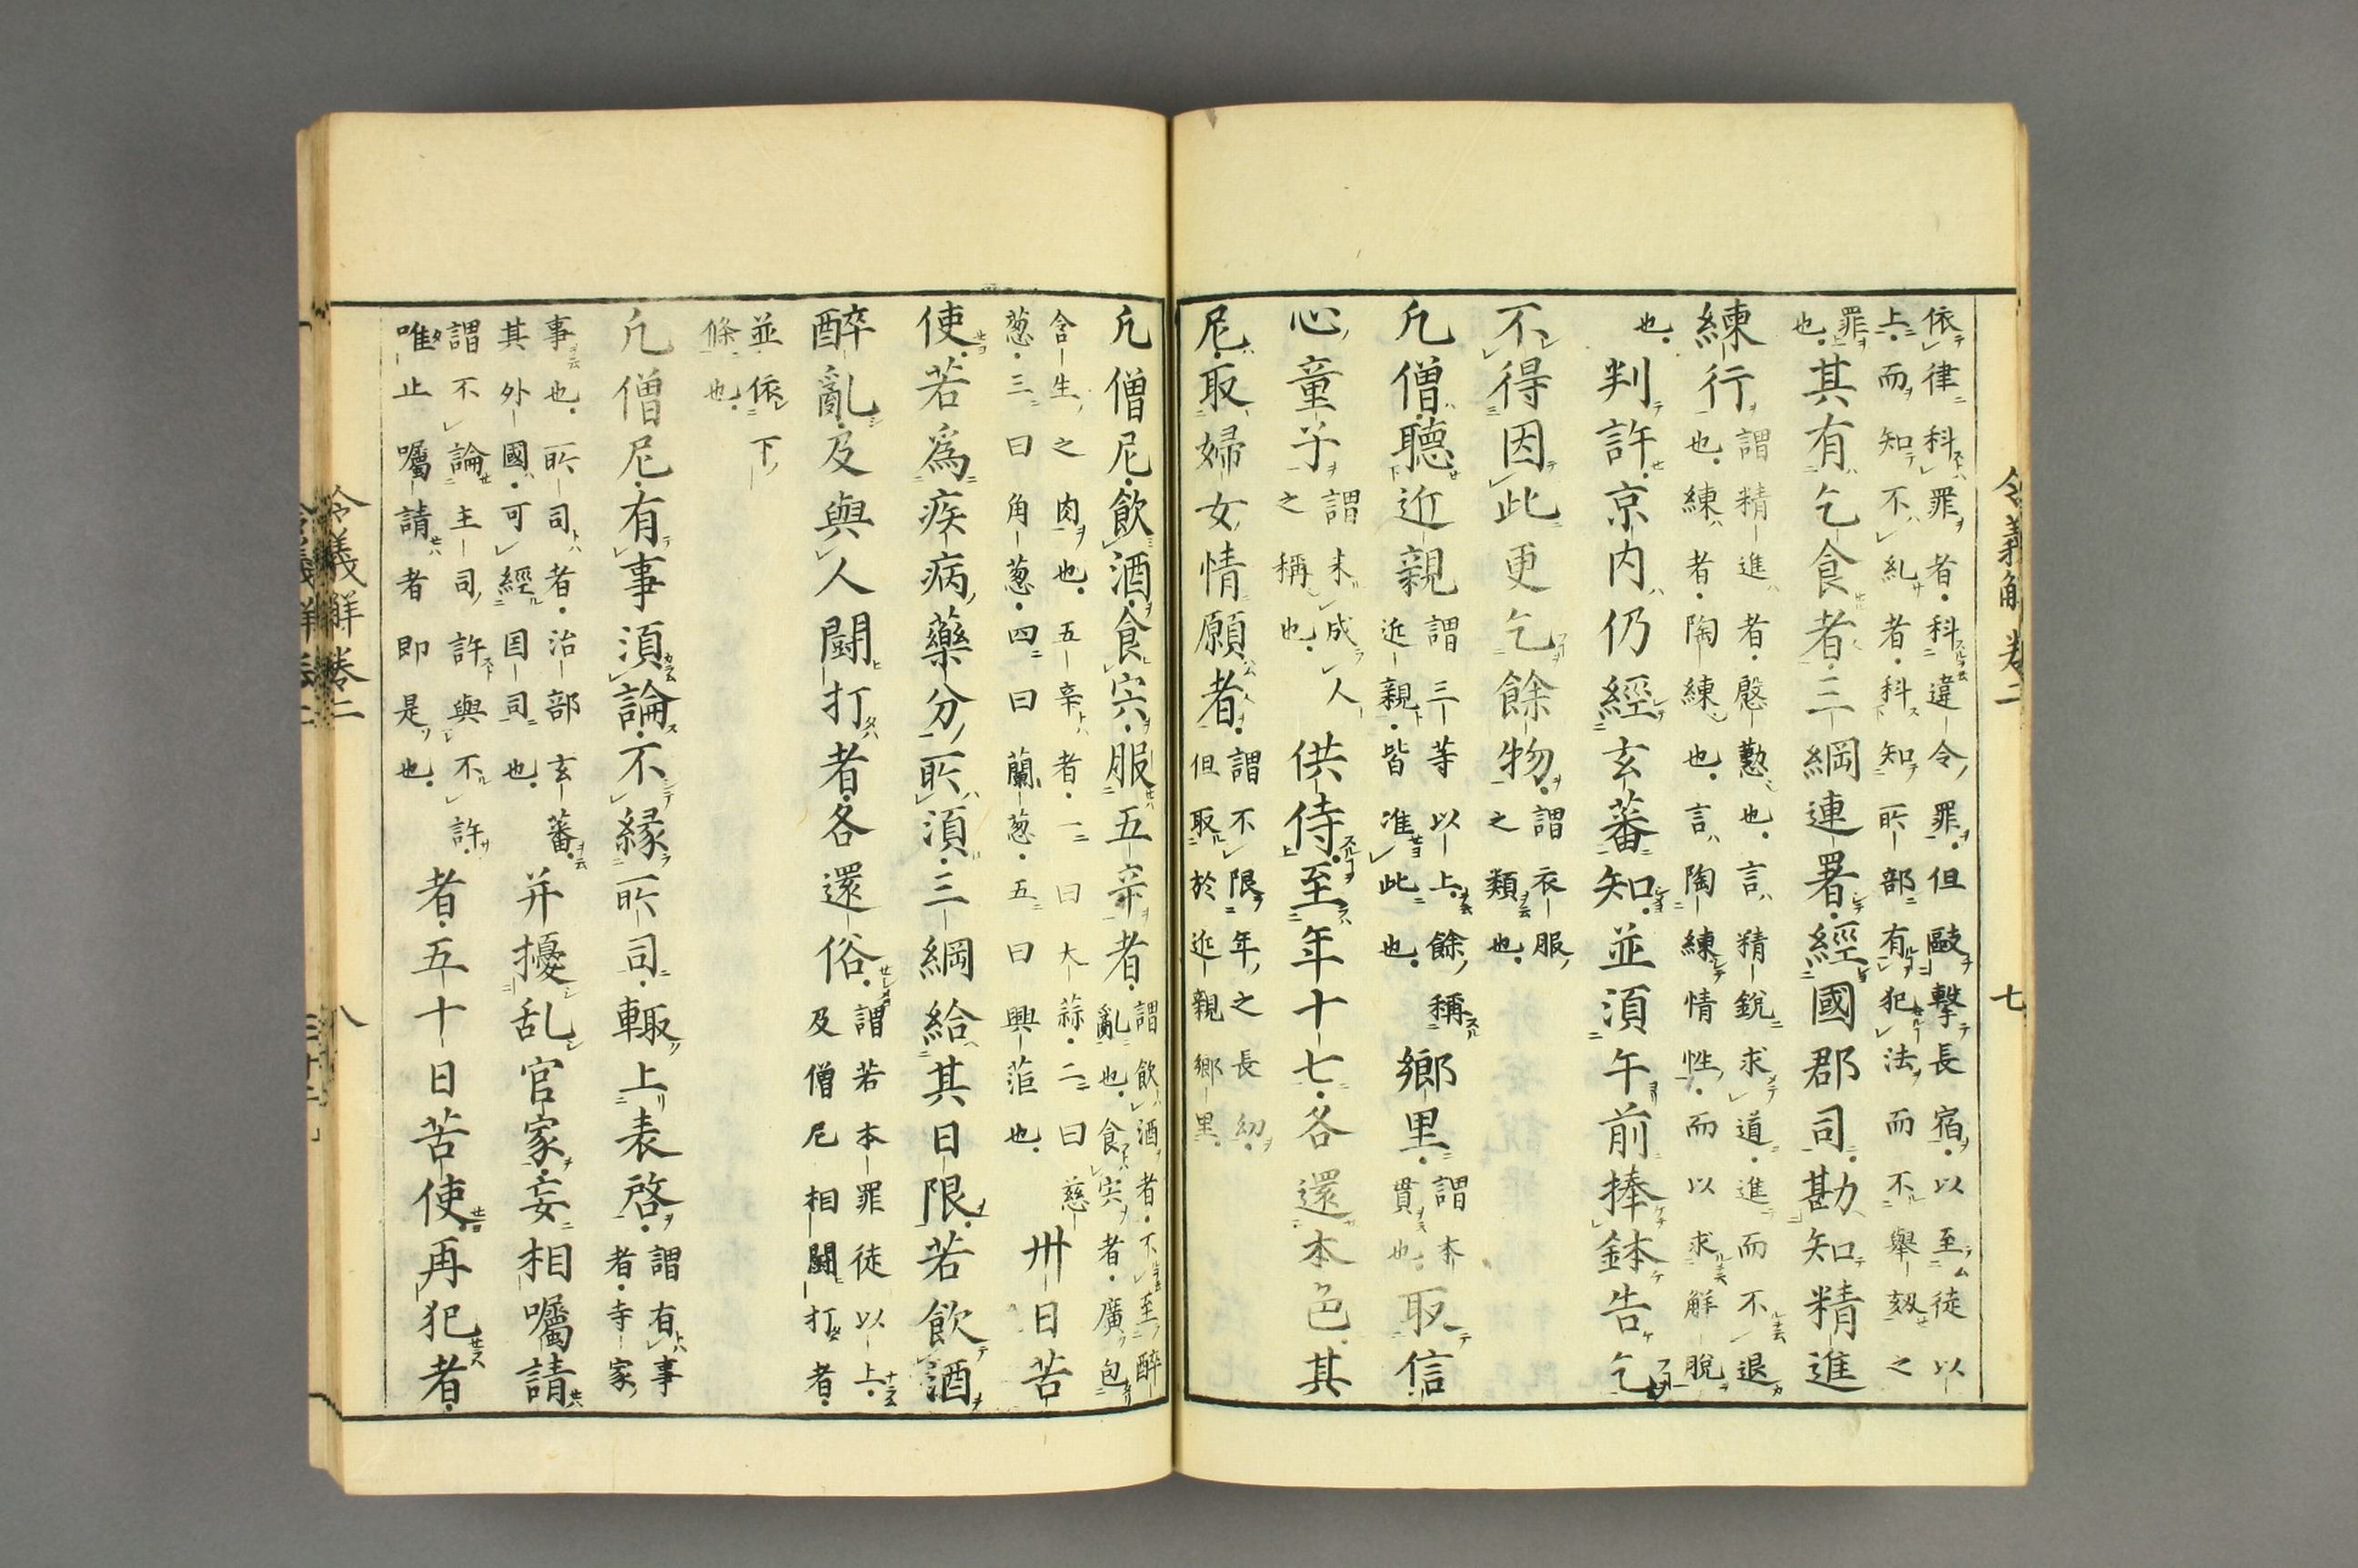 令義解 卷二 七
依律科罪者科違令罪但毆擊長宿以至徒以
上而知不糺者科知所部有犯法而不舉劾之
罪也其有乞食者三綱連署經國郡司勘知精進
練行謂精進者慇懃也言精銳求道進而不退也練者陶練也言陶練情性而以求解脫
也判許京内仍經玄蕃知並須午前捧鉢告乞
不得因此更乞餘物謂衣服之類也
凢僧聽近親謂三等以上餘稱近親皆准此也鄉里謂本貫也取信
心童子謂未成人之稱也供侍至年十七各還本色其
尼取婦女情願者謂不限年之長幼但取於近親鄉里
凢僧尼飲酒食宍服五辛者謂飲酒者不至醉亂也食宍者廣包
含生之肉也五辛者一曰大蒜二曰慈葱三曰角葱四曰蘭葱五曰興茞也卅日苦
使若爲疾病藥分所須三綱給其日限若飲酒
醉亂及與人鬪打者各還俗謂若本罪徒以上及僧尼相鬪打者
並依下條也
凢僧尼有事須論不縁所司輙上表啓謂有事者寺家
事也所司者治部玄蕃其外國可經国司也并擾乱官家妄相囑請
謂不論主司許與不許唯止囑請者即是也者五十日苦使再犯者
令義解 卷二 八